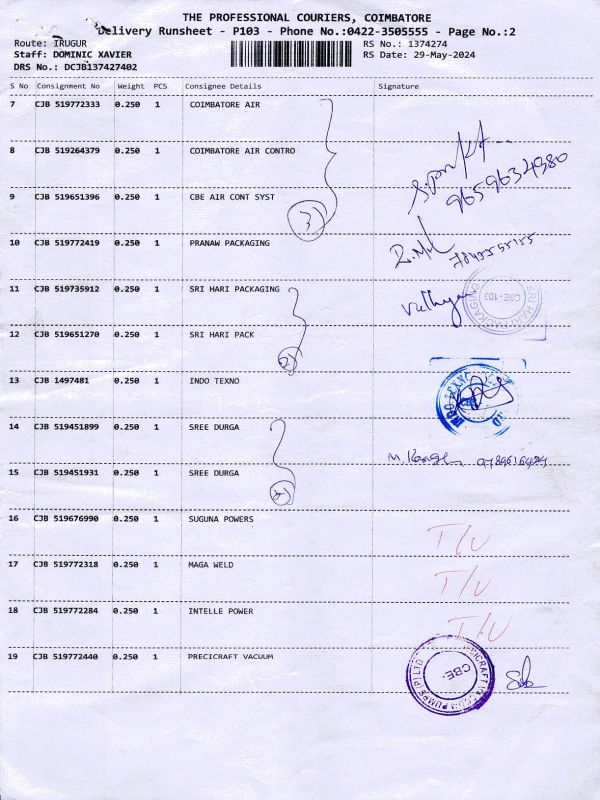 THE PROFESSIONAL COURIERS, COIMBATORE
Delivery Runsheet - P103 - Phone No.:0422-3505555 - Page No.:2
Route: IRUGUR RS No.: 1374274
Staff: DOMINIC XAVIER RS Date: 29-May-2024
DRS No.: DCJB137427402
S No Consignment No Weight PCS Consignee Details Signature
7 CJB 519772333 0.250 1 COIMBATORE AIR
8 CJB 519264379 0.250 1 COIMBATORE AIR CONTRO
9659634980
9 CJB 519651396 0.250 1 CBE AIR CONT SYST
3)
10 CJB 519772419 0.250 1 PRANAW PACKAGING
11 CJB 519735912 0.250 1 SRI HARI PACKAGING
SRI HARI PACKAGING CBE-103
12 CJB 519651270 0.250 1 SRI HARI PACK
2)
13 CJB 1497481 0.250 1 INDO TEXNO
14 CJB 519451899 0.250 1 SREE DURGA
15 CJB 519451931 0.250 1 SREE DURGA
2)
16 CJB 519676990 0.250 1 SUGUNA POWERS T/U
17 CJB 519772318 0.250 1 MAGA WELD T/U
18 CJB 519772284 0.250 1 INTELLE POWER T/U
19 CJB 519772440 0.250 1 PRECICRAFT VACUUM
CBE-